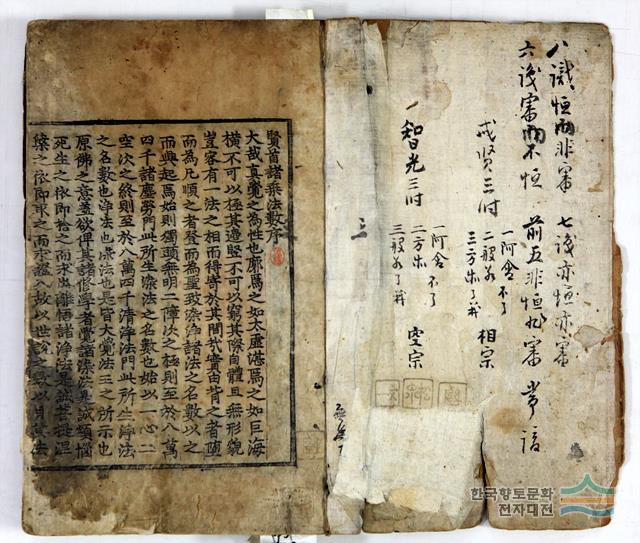 八識恒而非審 七識亦恒亦審
六識審而不恒 前五非恒非審
戒賢三时 一阿含 不了
二般若 相宗
三方 了
一智光三时 一阿含 不了
二方 不了
三般若了 空宗
三
賢首諸乘法數序
大哉真覺之爲性也廓焉之如太虛湛焉之如巨海
橫不可以極其邊竪不可以窮其際自體且無形貌
豈容有一法之相而得寄於其間哉實由背之者隨
而爲凡順之者登而爲聖致染淨諸法之名數以之
而興起焉始則獨頭無明二障次之極則至於八萬
四千諸塵勞門此所生染法之名數也始以一心二
空次之終則至於八萬四千清淨法門此所生淨法
之名數也淨法也染法也是皆大覺法王之所示也
原佛之意蓋欲俾其諸修學者覺諸染法是誠煩惱
死生之依即捨之而求出離悟諸淨法是誠菩提涅
槃之依即求之而求證入故以世說之數以
한국향토문화
전자대전